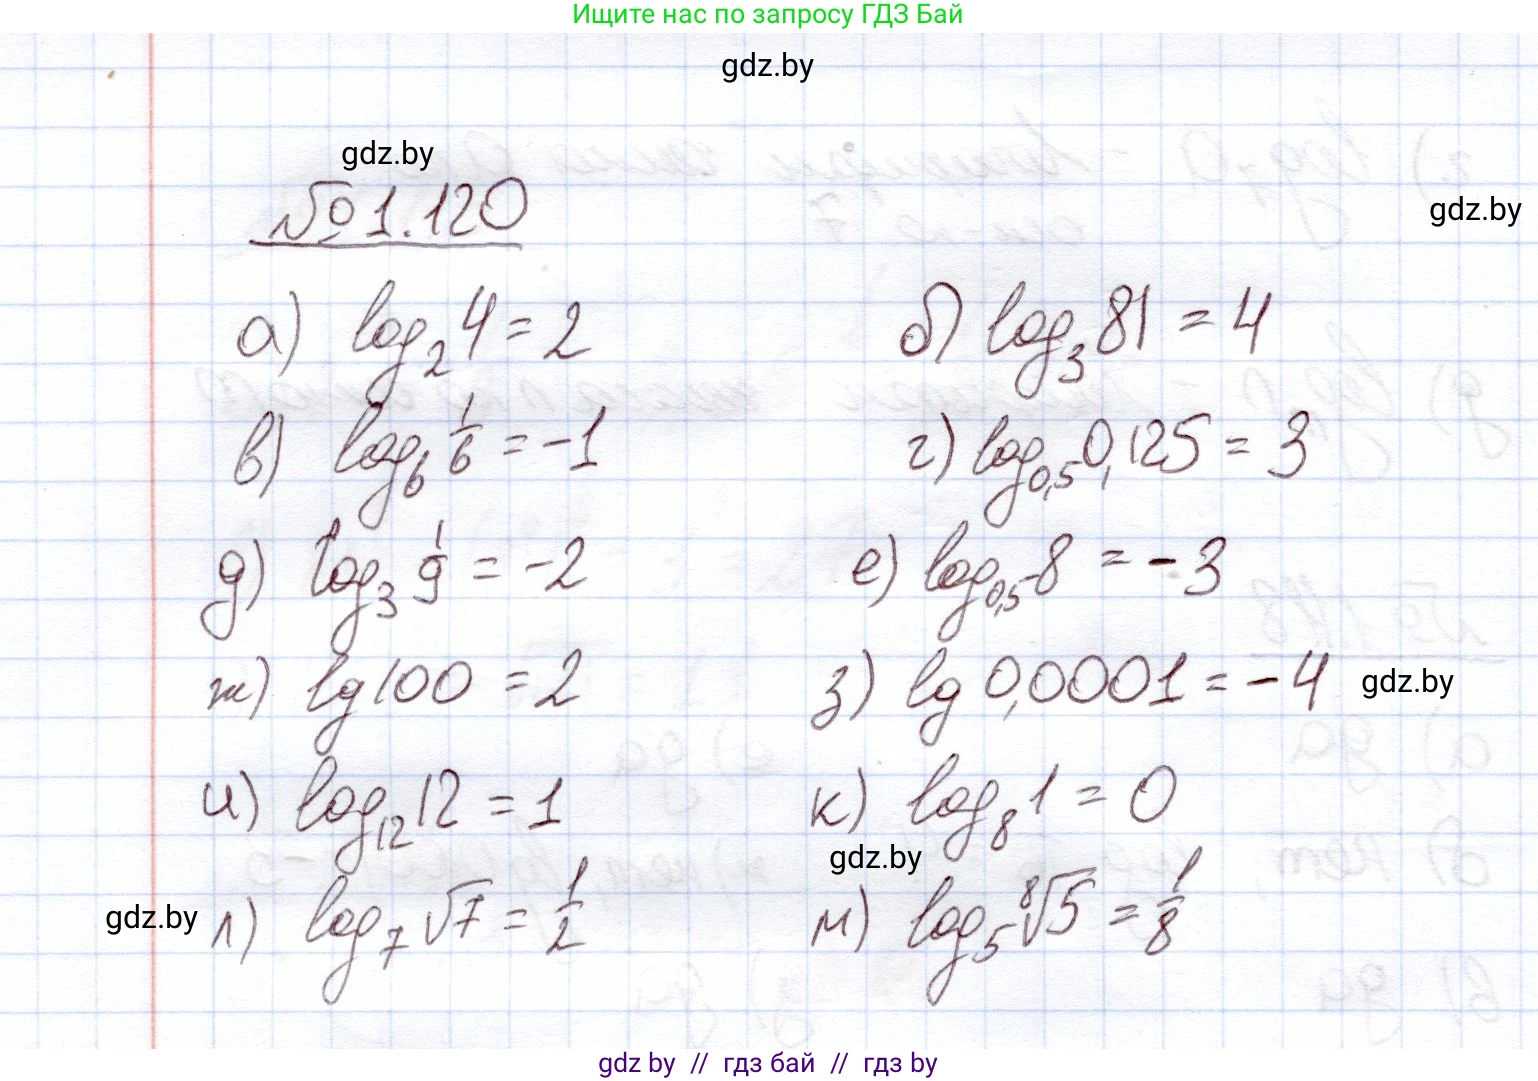 Ищите нас по запросу ГДЗ Бай
gdz.by
gdz.by
№1.120
gdz.by
а) log₂4 = 2
б) log₃81 = 4
в) log₆ 1/6 = -1
г) log₀,₅0,125 = 3
д) log₃ 1/9 = -2
е) log₀,₅8 = -3
ж) lg100 = 2
з) lg 0,0001 = -4
gdz.by
и) log₁₂12 = 1
к) log₈1 = 0
gdz.by
gdz.by
л) log₇√7 = 1/2
м) log₅⁸√5 = 1/8
gdz by // гдз бай // гдз by